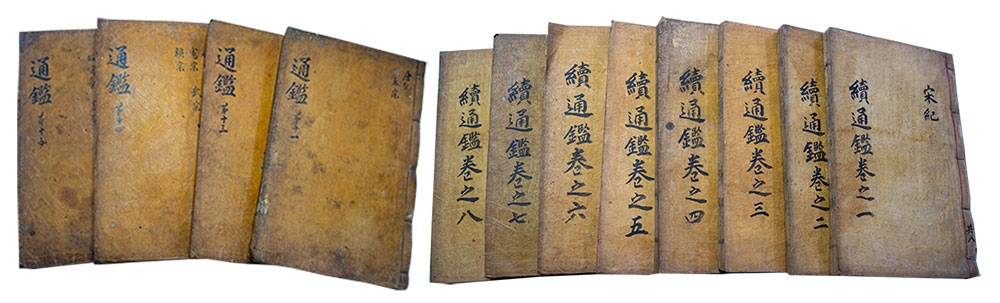 宋紀
續通鑑卷之一
共八
續通鑑卷之二
續通鑑卷之三
續通鑑卷之四
續通鑑卷之五
續通鑑卷之六
續通鑑卷之七
續通鑑卷之八
通鑑 第十一
通鑑 第十三
通鑑
通鑑